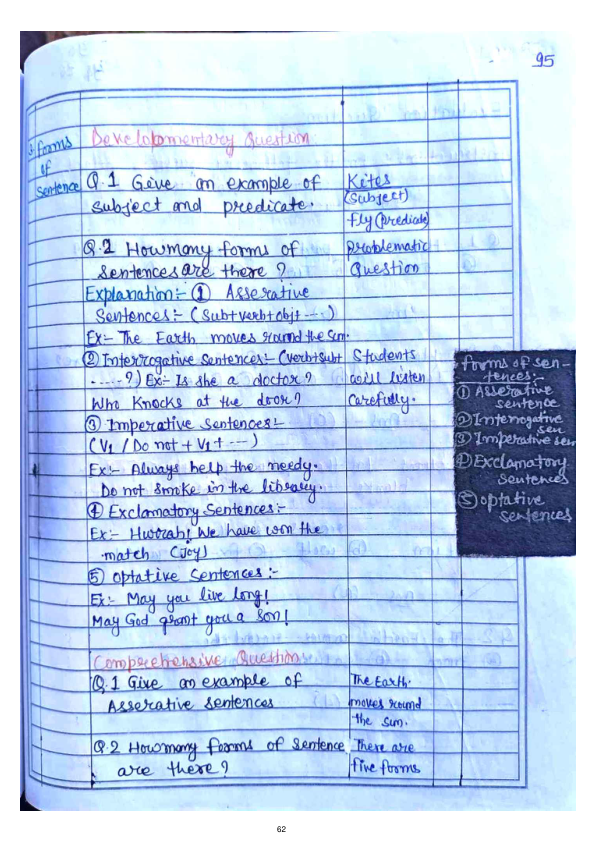 95
3. forms
of
Sentence
Developmentary Question
Q.1 Give an example of
subject and predicate.
Kites
(Subject)
fly (Prediate)
Q.2 How many forms of
Sentences are there ?
Problematic
Question
Explanation:- ① Asserative
Sentences:- (Sub+verb+obj+ ---)
Ex:- The Earth moves round the sun.
② Interrogative Sentences:- (verb+subt
-----?) Ex:- Is she a doctor?
Who Knocks at the door?
Students
will listen
Carefully.
③ Imperative Sentences:-
(V1 / Do not + V1 + ---)
Ex:- Always help the needy.
Do not smoke in the library.
④ Exclamatory Sentences:-
Ex:- Hurrah! We have won the
match (Joy)
⑤ optative Sentences:-
Ex:- May you live long!
May God grant you a son!
forms of sen-
tences:-
① Asserative
sentence
② Interrogative
sen
③ Imperative sen
④ Exclamatory
Sentences
⑤ optative
sentences
Comprehensive Question
Q.1 Give an example of
Asserative sentences
The Earth.
moves round
the sun.
Q.2 How many forms of sentence
are there?
There are
five forms
62